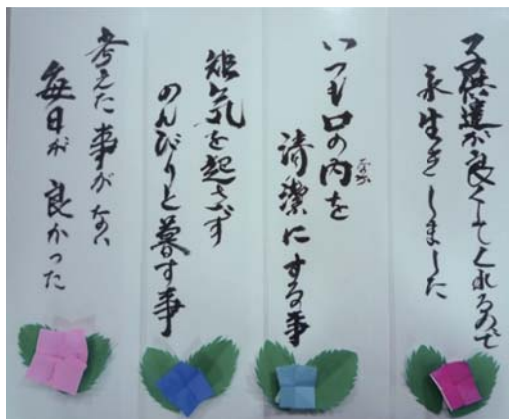 子供達が良くしてくれるので
永生きしました
いつも口の内を
なか
清潔にする事
短気を起さず
のんびりと暮す事
考えた事がない
毎日が良かった